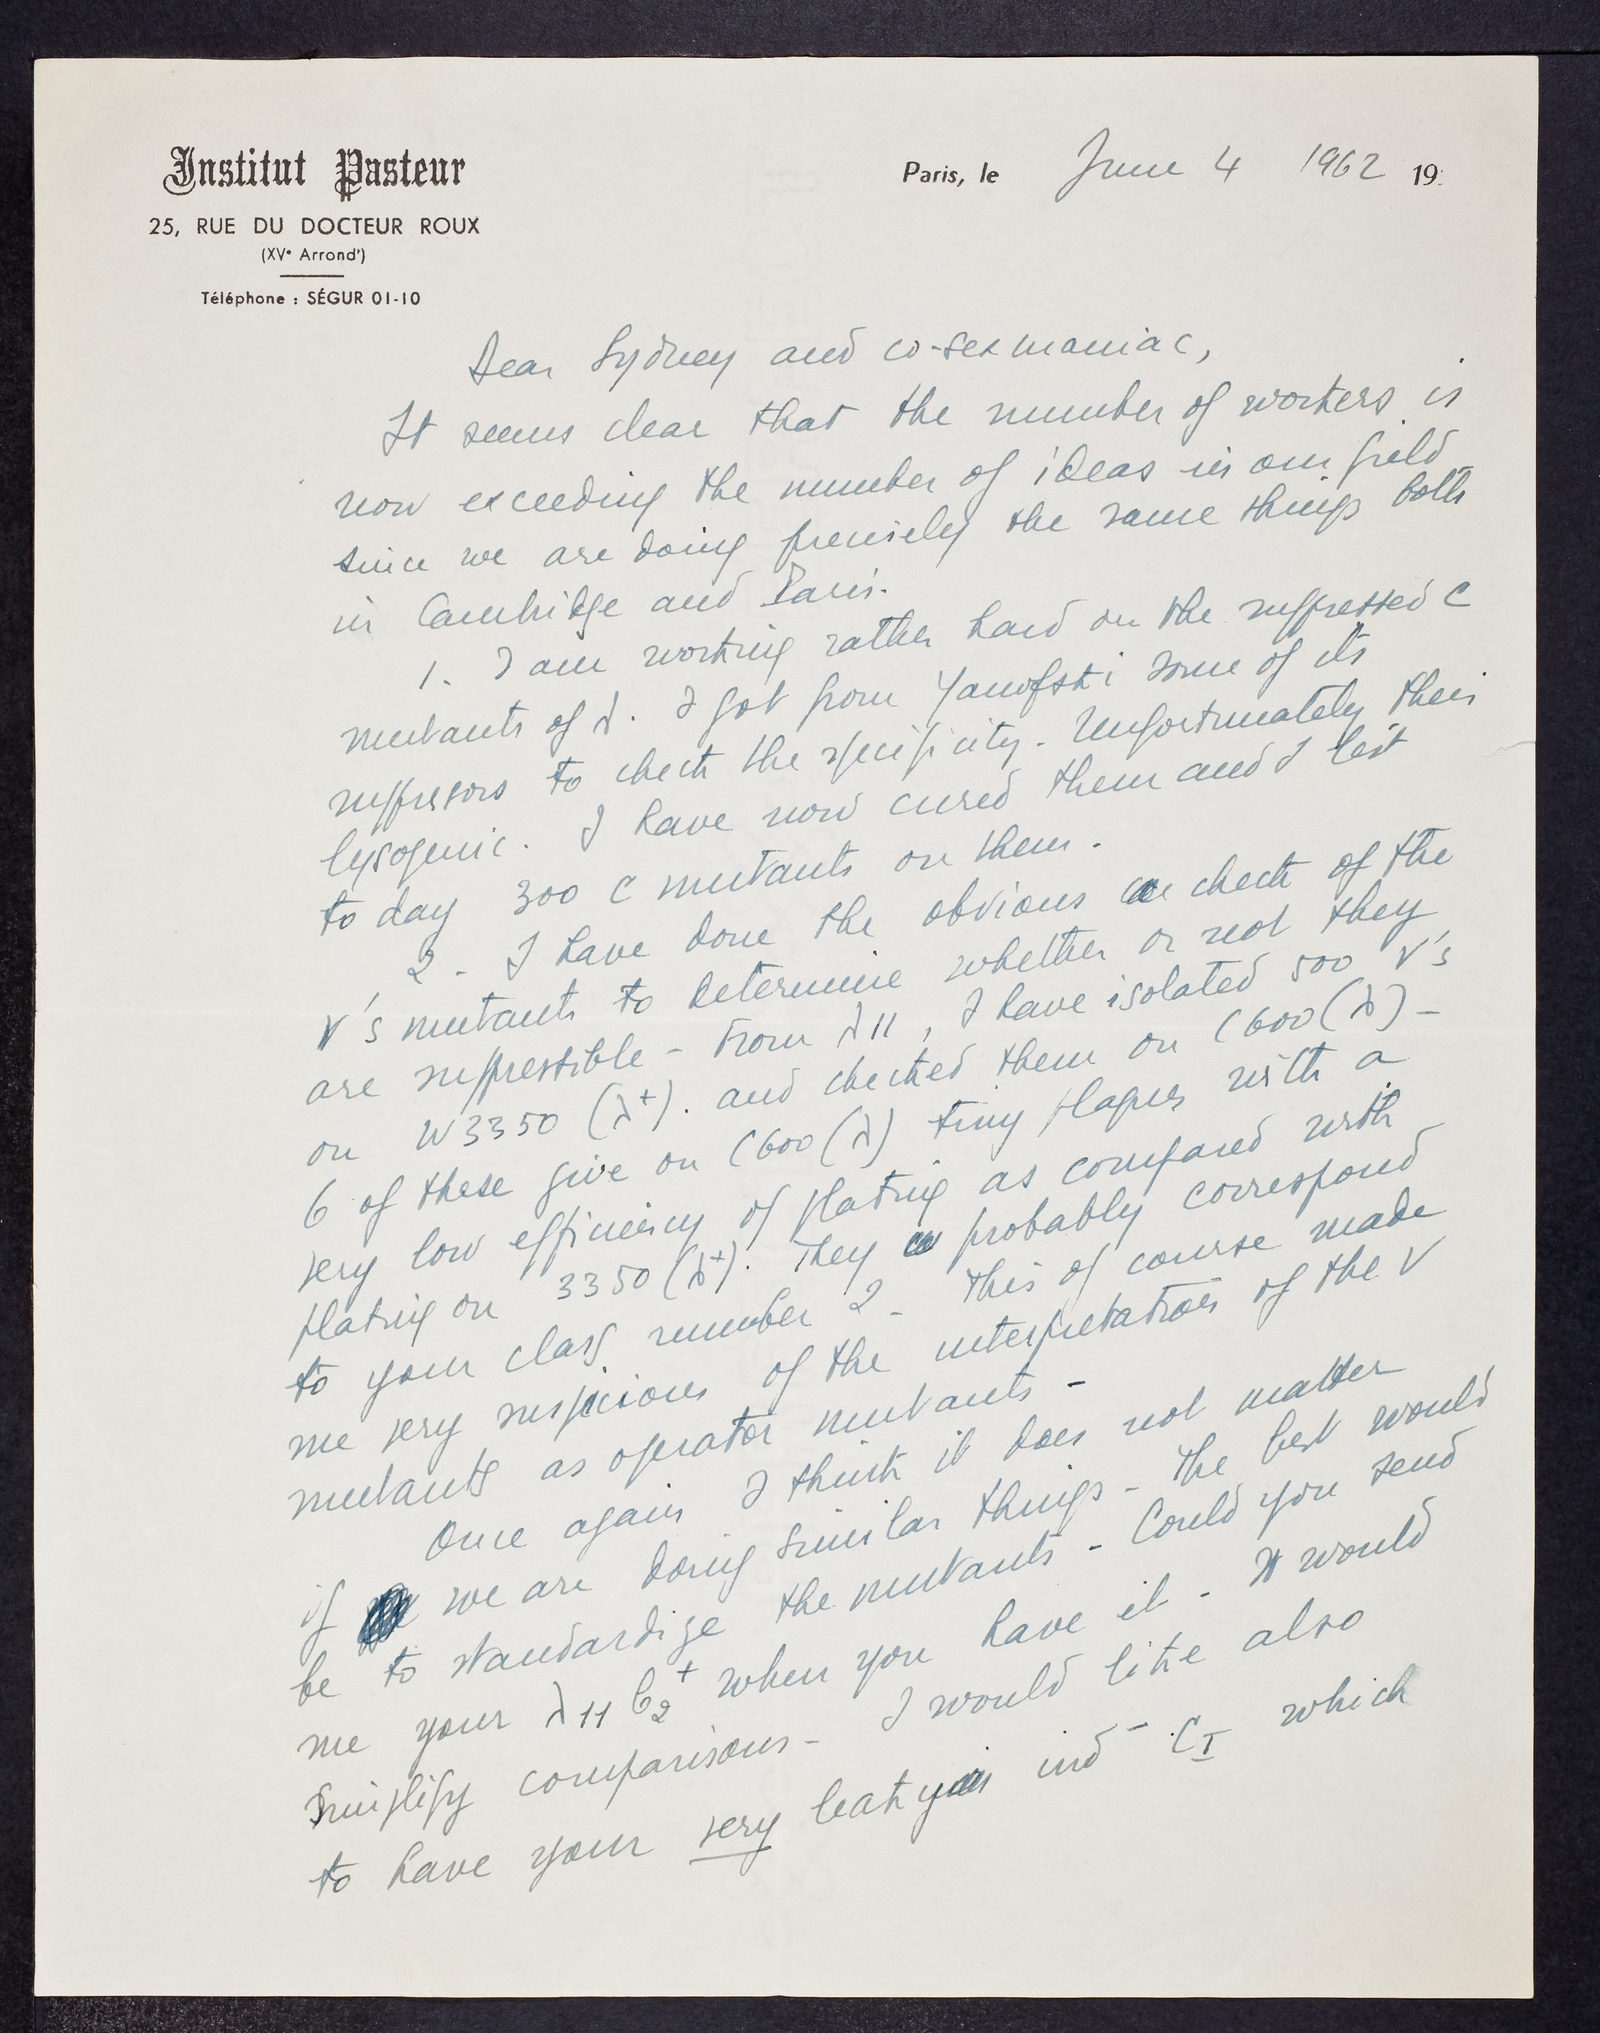 Institut Pasteur
25, RUE DU DOCTEUR ROUX
(XVe Arrondt)
Téléphone : SÉGUR 01-10
Paris, le June 4 1962 19
Dear Sydney and co-sexmaniac,
It seems clear that the number of workers is
now exceeding the number of ideas in our field
since we are doing precisely the same things both
in Cambridge and Paris.
1. I am working rather hard on the suppressed C
mutants of λ. I got from Yanofski some of its
suppressors to check the specificity. Unfortunately their
lysogenic. I have now cured them and I test
to day 300 C mutants on them.
2 - I have done the obvious check of the
V's mutants to determine whether or not they
are suppressible - From λ11, I have isolated 500 V's
on W3350 (λ+). and checked them on C600(λ) -
6 of these give on C600(λ) tiny plaques with a
very low efficiency of plating as compared with
plating on 3350(λ+). They probably correspond
to your class number 2 - This of course made
me very suspicious of the interpretation of the V
mutants as operator mutants -
Once again I think it does not matter
if we are doing similar things - The best would
be to standardize the mutants - Could you send
me your λ11 b2+ when you have it - It would
simplify comparisons - I would like also
to have your very ind - CI which